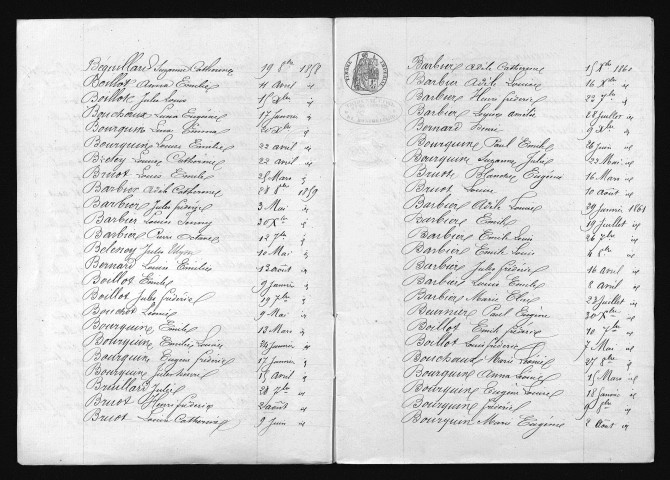 Bequillard Suzanne Catherine 19 8bre 1858
Boillot Anna Emilie 11 avril id
Boillot Jules Louis 15 Xbre id
Bouchaux Luina Eugénie 17 Janvier id
Bourquin Luina Emma 20 Xbre id
Bourquin Louis Emilie 22 avril id
Louise Catherine 22 avril id
Bruot Louis Emile 25 Mars id
Barbier Adèle Catherine 28 8bre 1859
Barbier Jules Frédéric 3 Mai id
Barbier Louise Fanny 30 Xbre id
Barbier Pierre Octave 12 7bre id
Belenoy Jules 10 Mai id
Bernard Louise Emélie 12 août id
Boillot Emile 9 Janvier id
Boillot Jules Frédéric 19 7bre id
Bouchot Léonie 9 Mai id
Bourquin Emile 13 Mars id
Bourquin Emilie Louise 24 Janvier id
Bourquin Eugène Frédéric 17 Janvier id
Bourquin Jules 15 Avril id
Breuillard Julie 28 7bre id
Bruot Henri Frédéric 2 août id
Bruot Louise Catherine 9 Juin id
TIMBRE IMPÉRIAL
Barbier Adèle Catherine 15 Xbre 1860
Barbier Adèle Louise 16 Xbre id
Barbier Henri Frédéric 22 7bre id
Barbier Amélie 28 Juillet id
Bernard 9 Xbre id
Bourquin Paul Emile 26 Juin id
Bourquin Suzanne Julie 22 Mai id
Bruot Blanche Eugénie 16 Mars id
Bruot Louise 10 août id
Barbier Adèle Louise 29 Janvier 1861
Barbier Emile 19 Juillet id
Barbier Emile Louis 26 7bre id
Barbier Emile Louis 4 8bre id
Barbier Jules Frédéric 16 avril id
Barbier Louis Emile 8 avril id
Barbier Marie 23 Juillet id
Beurnier Paul Eugène 30 Xbre id
Boillot Emile Frédéric 10 7bre id
Boillot Louis Frédéric 7 Mai id
Bouchaux Marie Léonie 27 8bre id
Bourquin Anna Louise 15 Mars id
Bourquin Eugène Louis 18 Janvier id
Bourquin Frédéric 9 8bre id
Bourquin Marie Eugénie 2 Août id